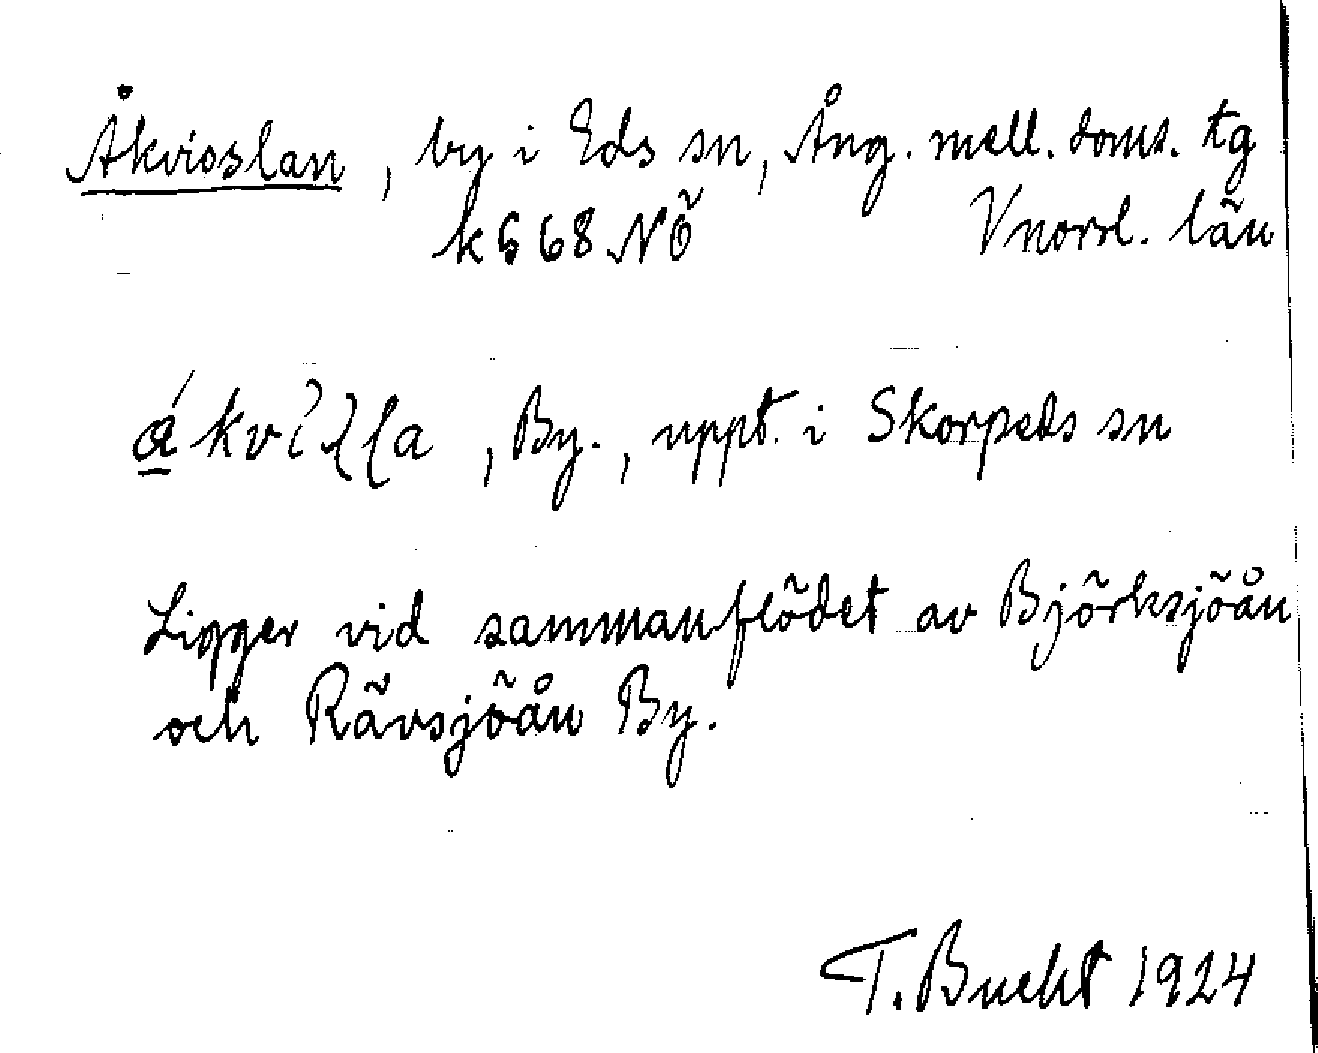 Åkvisslan, by i Eds sn, Ång. mell. doms. tg
k 668 NÖ Vnorrl. län
, By., uppt. i Skorpeds sn
Ligger vid sammanflödet av Björksjöån
och Rävsjöån By.
T. Bucht 1924